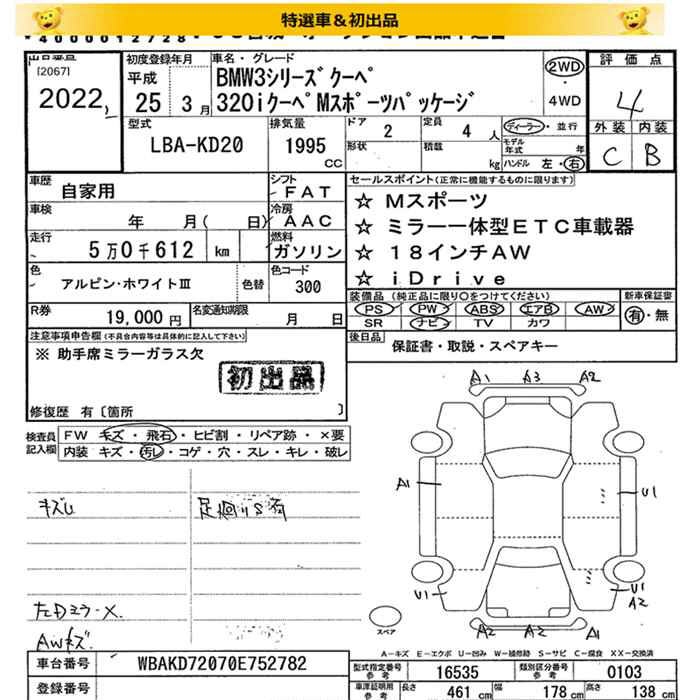 特選車＆初出品
*4000012728*
出品番号 初度登録年月 車名・グレード 評価点
[2067] 平成 BMW3シリーズクーペ 2WD
2022 25 3月 320iクーペMスポーツパッケージ 4WD 4
型式 排気量 ドア 定員 ディーラー・並行 外装 内装
LBA-KD20 1995 CC 2 4人 C B
形状 積載 kg モデル年式 年
ハンドル 左・右
車歴 自家用 シフト FAT セールスポイント(正常に機能するものに限ります)
☆ Mスポーツ
車検 年 月( 日) 冷房 AAC ☆ ミラー一体型ETC車載器
走行 5万0千612 km 燃料 ガソリン ☆ 18インチAW
☆ iDrive
色 アルピン・ホワイトⅢ 色替 色コード 300
装備品(純正品に限り○をつけてください) 新車保証書
PS PW ABS エアB AW 有・無
SR ナビ TV カワ
R券 19,000円 名変通知期限 月 日
注意事項申告欄(不具合内容等は具体的に記入して下さい) 後日品 保証書・取説・スペアキー
※ 助手席ミラーガラス欠
初出品
修復歴 有〔箇所 〕
検査員記入欄 FW キズ・飛石・ヒビ割・リペア跡・×要
内装 キズ・汚レ・コゲ・穴・スレ・キレ・破レ
A1 A3 A2
A1 U1
キズU 足廻りS有
U1 U1 A2
左Dミラ-X
スペア A2 A2 A1
AWキズ
A-キズ E-エクボ U-凹み W-補修跡 S-サビ C-腐食 XX-交換済
車台番号 WBAKD72070E752782 型式指定番号 参考 16535 類別区分番号 参考 0103
登録番号 車庫証明用 参考 長さ 461 cm 幅 178 cm 高さ 138 cm